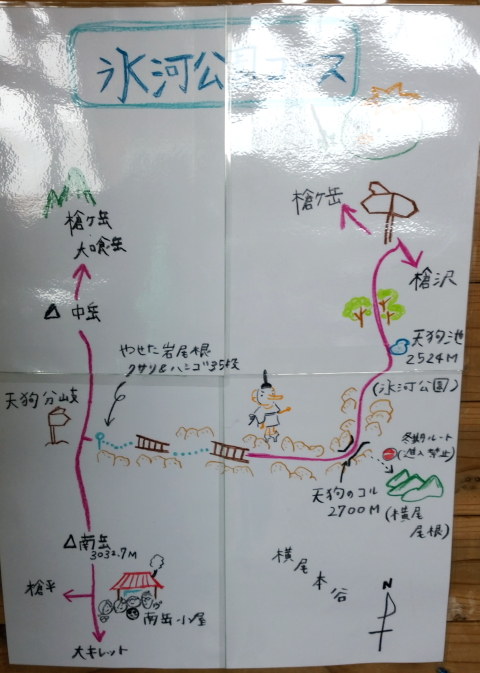 氷河公園コース
槍ヶ岳
大喰岳
中岳
やせた岩尾根
クサリ&ハシゴ35段
天狗分岐
南岳
3032.7M
槍平
南岳小屋
大キレット
槍ヶ岳
槍沢
天狗池
2524M
(氷河公園)
冬期ルート
(進入禁止)
天狗のコル
2700M
(横尾
尾根)
横尾本谷
N